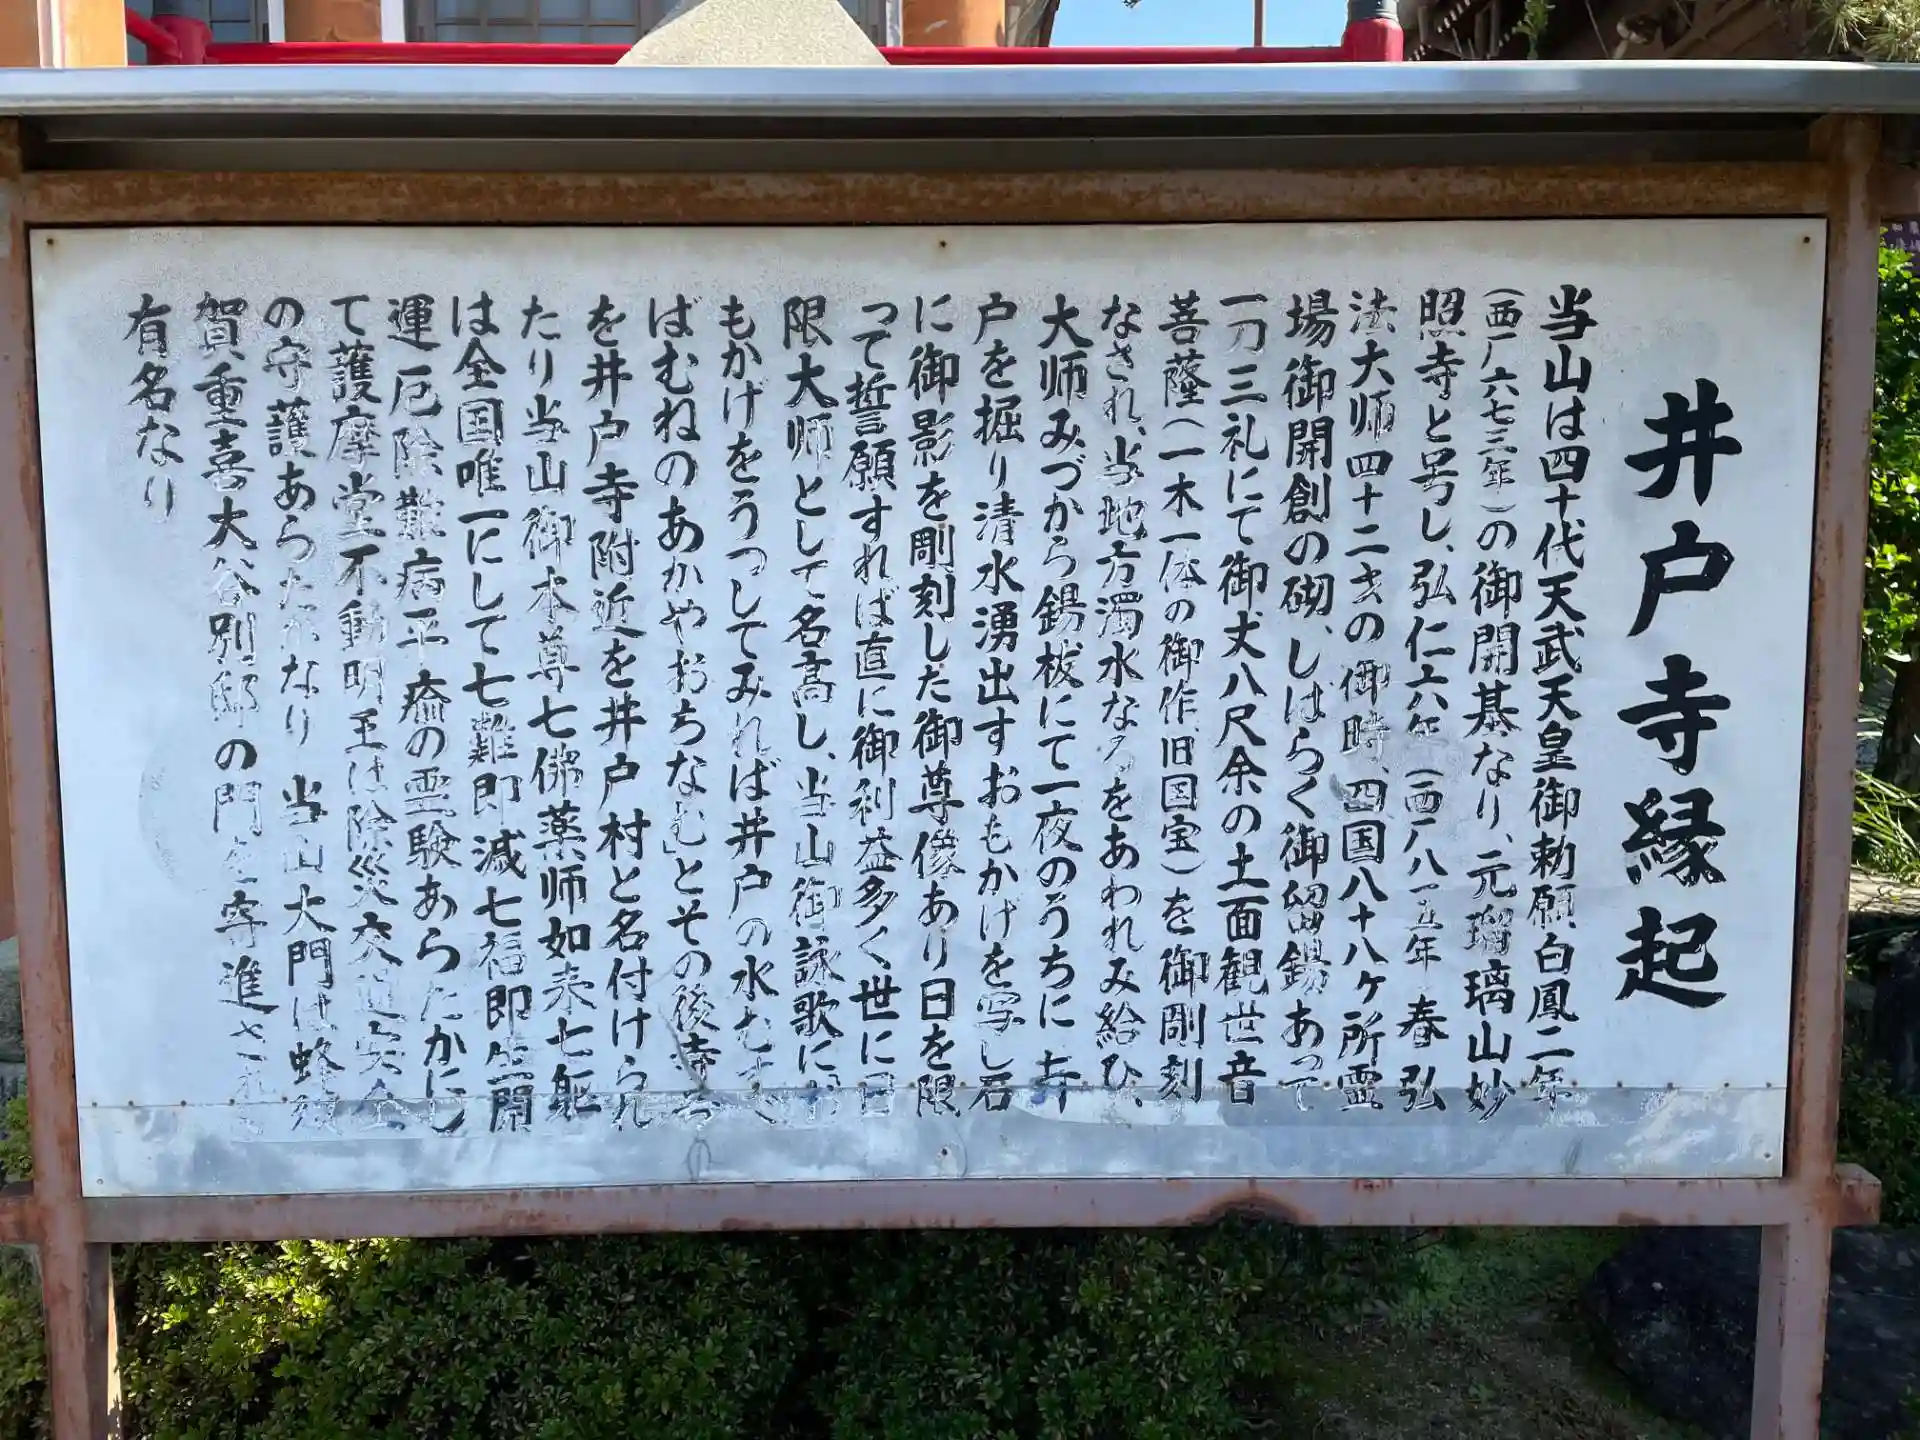 井戸寺縁起
当山は四十代天武天皇御勅願白鳳二年
(西一六七三年)の御開基なり、元瑠璃山妙
照寺と号し、弘仁六年(西一八一五年)春 弘
法大师四十二才の御時、四国八十八ヶ所霊
場御開創の砌、しばらく御留錫あって
一刀三礼にて御丈八尺余の十一面観世音
菩薩(一木一体の御作、旧国宝)を御剛刻
なされ、当地方濁水なるをあわれみ給ひ、
大师みづから錫杖にて一夜のうちに寺
戸を掘り清水湧出すおもかげを写し石
に御影を剛刻した御尊像あり日を限
って誓願すれば直に御利益多く世に日
限大师として名高し、当山御詠歌にお
もかげをうつしてみれば井戸の水むす
ばむねのあかやおちなむ」とその後寺号
を井戸寺附近を井戸村と名付けられ
たり当山御本尊七佛薬师如来七躯
は全国唯一にして七難即滅七福即生開
運厄除難病平癒の霊験あらたかにし
て護摩堂不動明王は除災交通安全
の守護あらたかなり 当山大門は蜂須
賀重喜大谷別邸の門を寄進され
有名なり